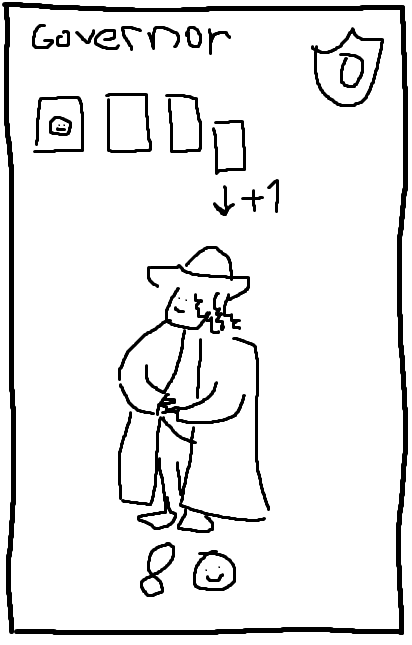 Governor
0
+1
8